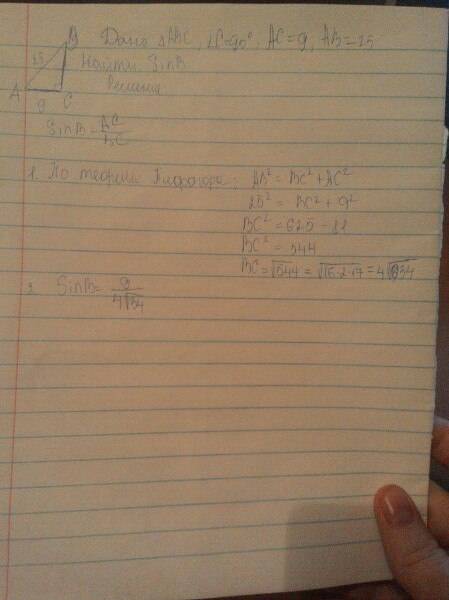 Дано △ABC, ∠C=90°, AC=9, AB=25
Найти: SinB
Решение
B
25
A
9
C
SinB = AC/BC
1. По теореме Пифагора: AB² = BC² + AC²
25² = BC² + 9²
BC² = 625 - 81
BC² = 544
BC = √544 = √16·2·17 = 4√34
2. SinB = 9/4√34